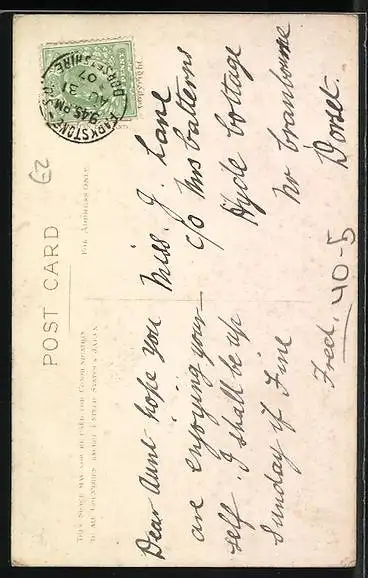 POST CARD
THIS SPACE MAY NOW BE USED FOR COMMUNICATION
TO ALL COUNTRIES EXCEPT UNITED STATES & JAPAN.
FOR ADDRESS ONLY.
PARKSTONE R.S.O.
9.45 PM
AU 31
07
DORSETSHIRE
Dear Aunt hope you
are enjoying your
self. I shall be up
Sunday if Fine
Fred.
Miss. J. Lane
c/o Mrs Batterns
Hyde Cottage
Nr Cranbourne
Dorset.
40-5